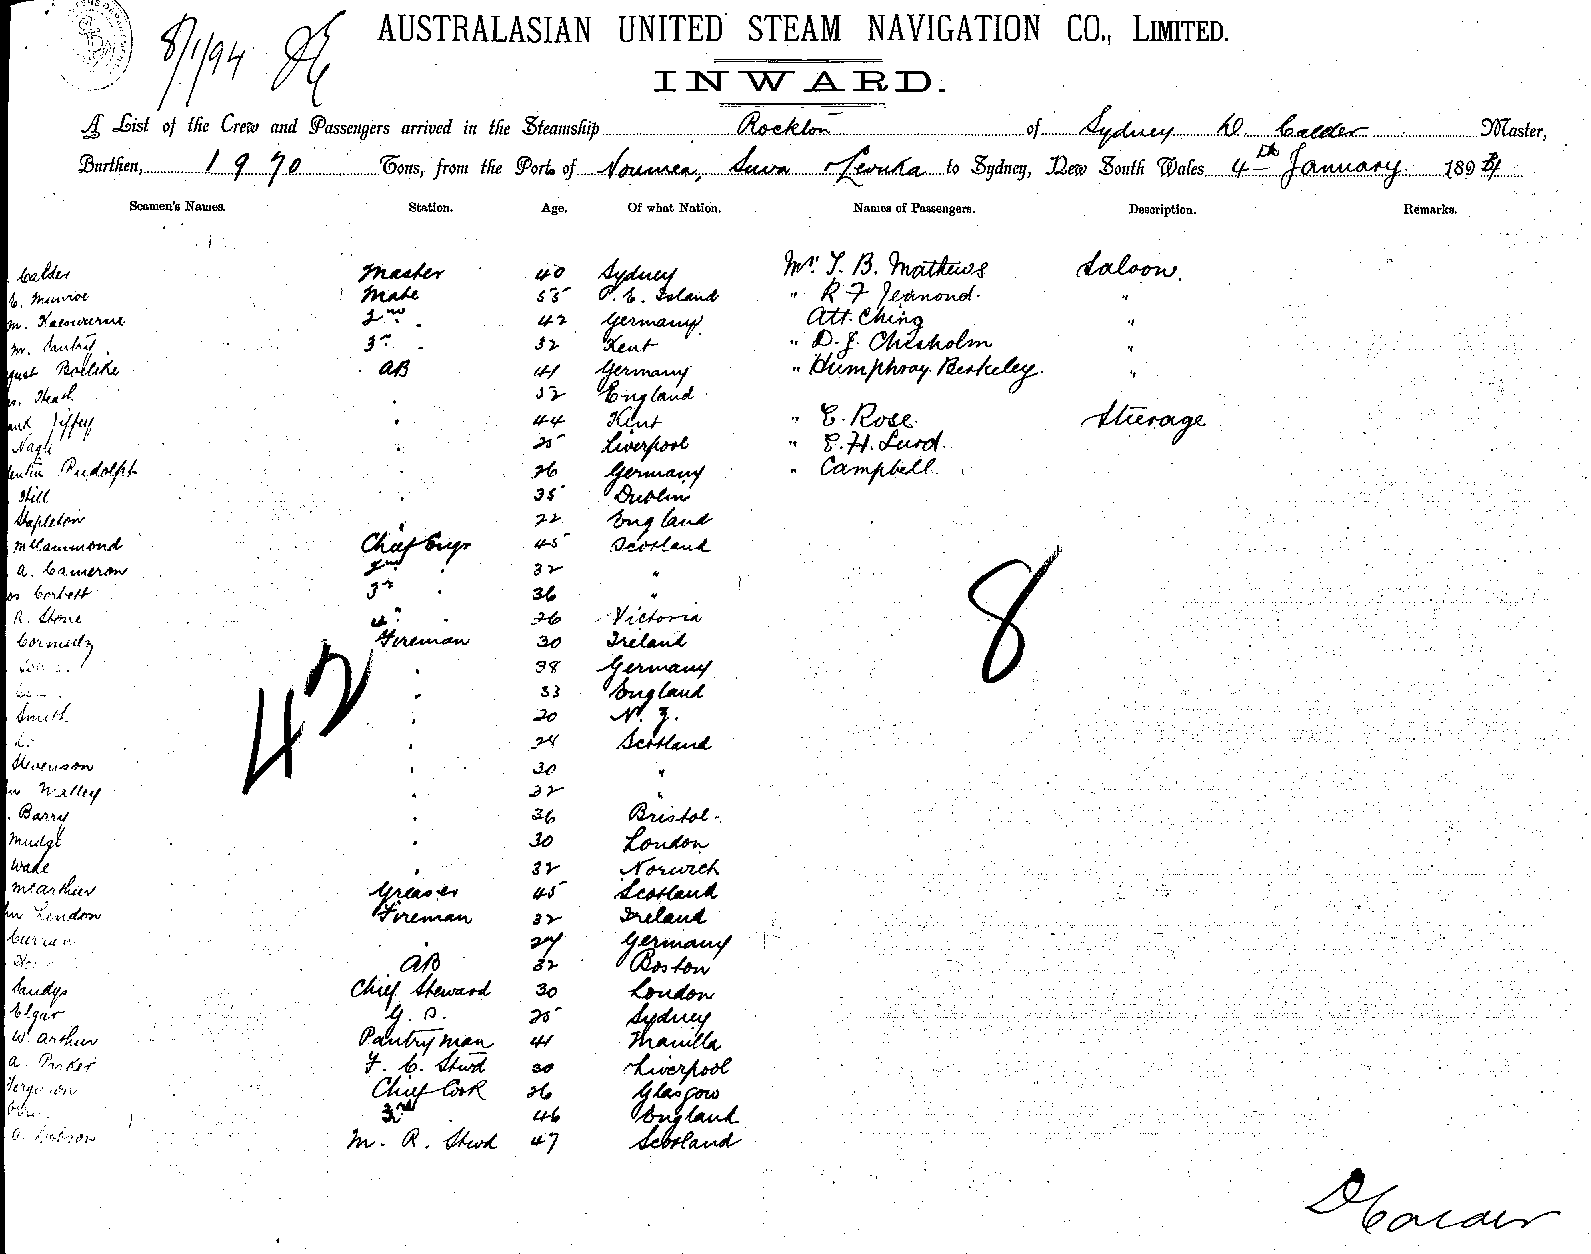 8/1/94
AUSTRALASIAN UNITED STEAM NAVIGATION CO., LIMITED.
INWARD.
A List of the Crew and Passengers arrived in the Steamship Rockton of Sydney D. Calder Master,
Burthen, 1970 Tons, from the Ports of Noumea, Suva & Levuka to Sydney, New South Wales 4th January 1894
Seamen's Names. Station. Age. Of what Nation. Names of Passengers. Description. Remarks.
Calder Master 40 Sydney Mr. T. B. Mathews Saloon.
C. Munroe Mate 55 P. E. Island " R F "
m. 2nd 42 Germany Att. Ching "
m. 3rd 32 Kent " D. J. Chisholm "
gust AB 41 Germany " Humphray Berkeley. "
Head 52 England
44 Kent " E. Rose Steerage
25 Liverpool " E. H.
Rudolph 26 Germany " Campbell
Hill 35 Dublin
Stapleton 22 England
McCammond Chief Engr 45 Scotland
A. Cameron 2nd 32 "
Corbett 3rd 36 "
R. Stone 4th 26 Victoria
Fireman 30 Ireland
38 Germany
33 England
Smith 20 N. Z.
24 Scotland
Stevenson 30 "
Walley 32 "
Barry 36 Bristol
Mudge 30 London
Wade 32 Norwich
McArthur Greaser 45 Scotland
Lendon Fireman 32 Ireland
27 Germany
AB 32 Boston
Sandys Chief Steward 30 London
Elgar G. S. 25 Sydney
W. Arthur Pantryman 41 Manilla
A. Parker F. C. Stwd 30 Liverpool
Ferguson Chief Cook 26 Glasgow
46 England
M. R. Stwd 47 Scotland
42
8
D Calder